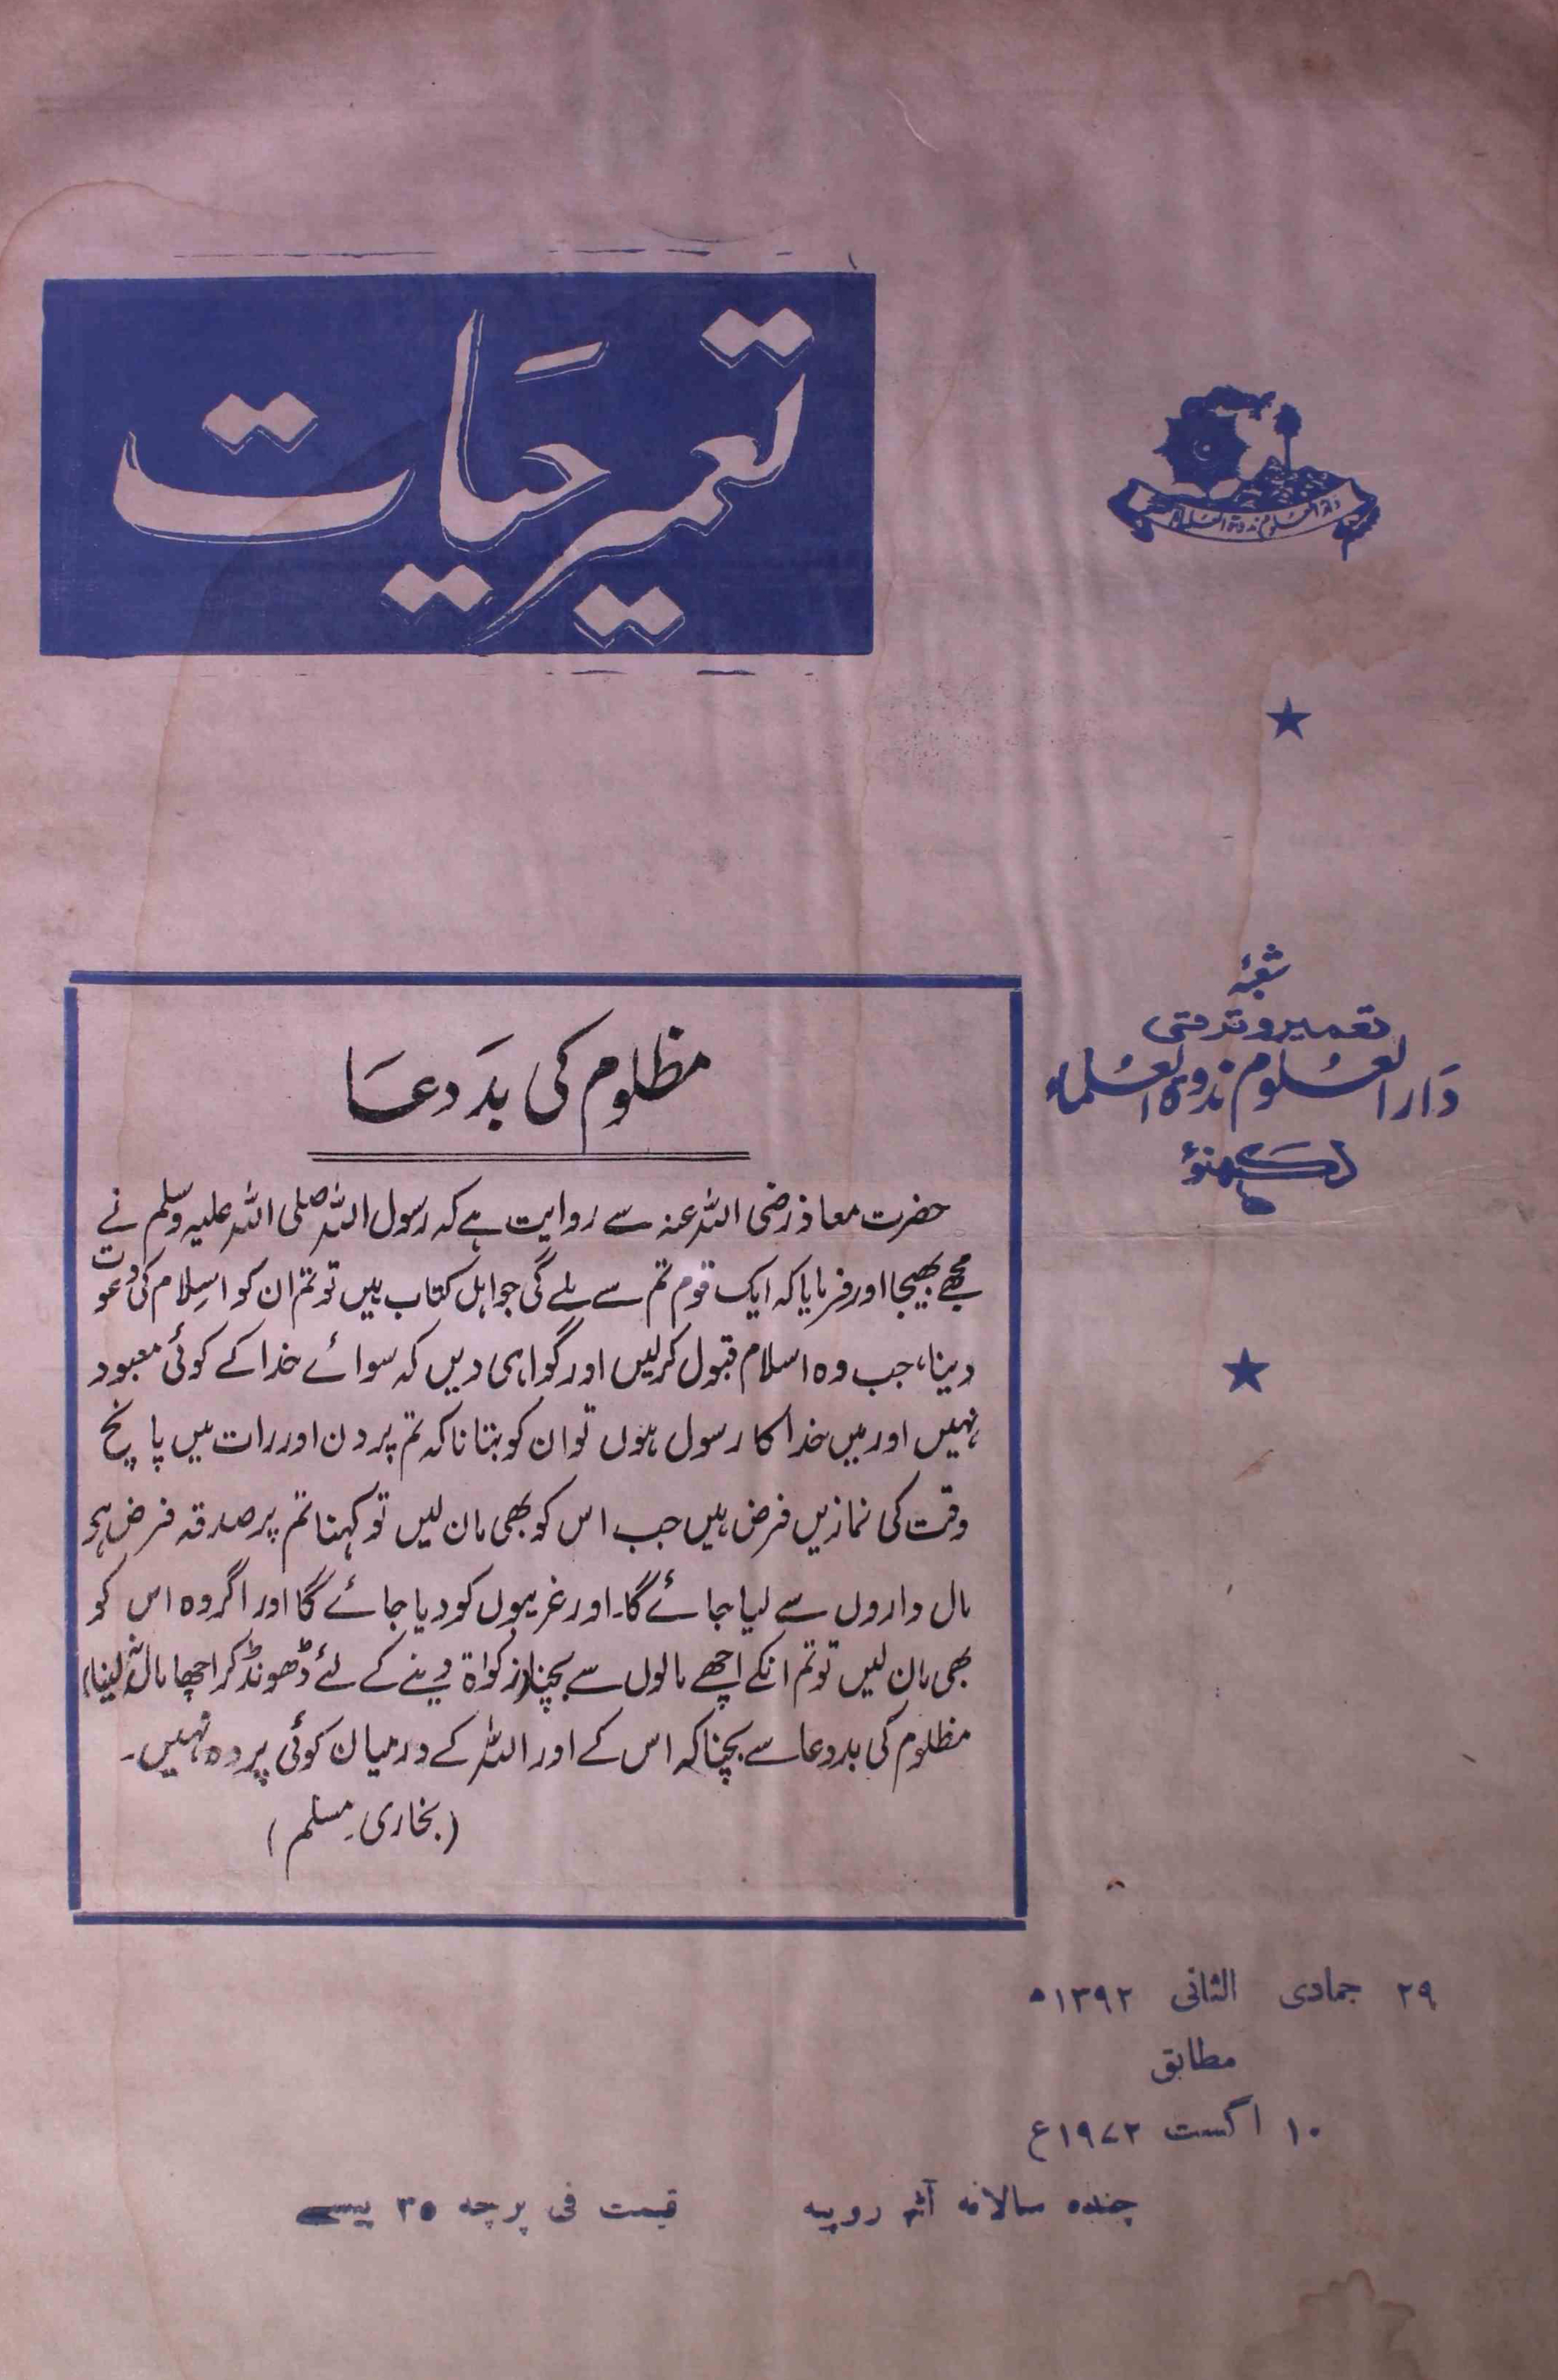 تعمیر حیات
دار العلوم ندوۃ العلماء
شعبۂ
تعمیر و ترقی
دَار العُلوم ندوۃ العُلماء
لکھنؤ
مظلوم کی بَد دعَا
حضرت معاذ رضی اللہ عنہ سے روایت ہے کہ رسول اللہ صلی اللہ علیہ وسلم نے
مجھے بھیجا اور فرمایا کہ ایک قوم تم سے ملے گی جو اہل کتاب ہیں تو تم ان کو اسلام کی دعوت
دینا، جب وہ اسلام قبول کرلیں اور گواہی دیں کہ سوائے خدا کے کوئی معبود
نہیں اور میں خدا کا رسول ہوں تو ان کو بتانا کہ تم پر دن اور رات میں پانچ
وقت کی نمازیں فرض ہیں جب اس کو بھی مان لیں تو کہنا تم پر صدقہ فرض ہے جو
مال داروں سے لیا جائے گا۔ اور غریبوں کو دیا جائے گا اور اگر وہ اس کو
بھی مان لیں تو تم انکے اچھے مالوں سے بچنا (زکواۃ لینے کے لئے ڈھونڈ کر اچھا مال نہ لینا)
مظلوم کی بددعا سے بچنا کہ اس کے اور اللہ کے درمیان کوئی پردہ نہیں۔
(بخاری۔ مسلم)
۲۹ جمادی الثانی ۱۳۹۲ھ
مطابق
۱۰ اگست ۱۹۷۲ع
چندہ سالانہ آٹھ روپیہ قیمت فی پرچہ ۳۵ پیسے